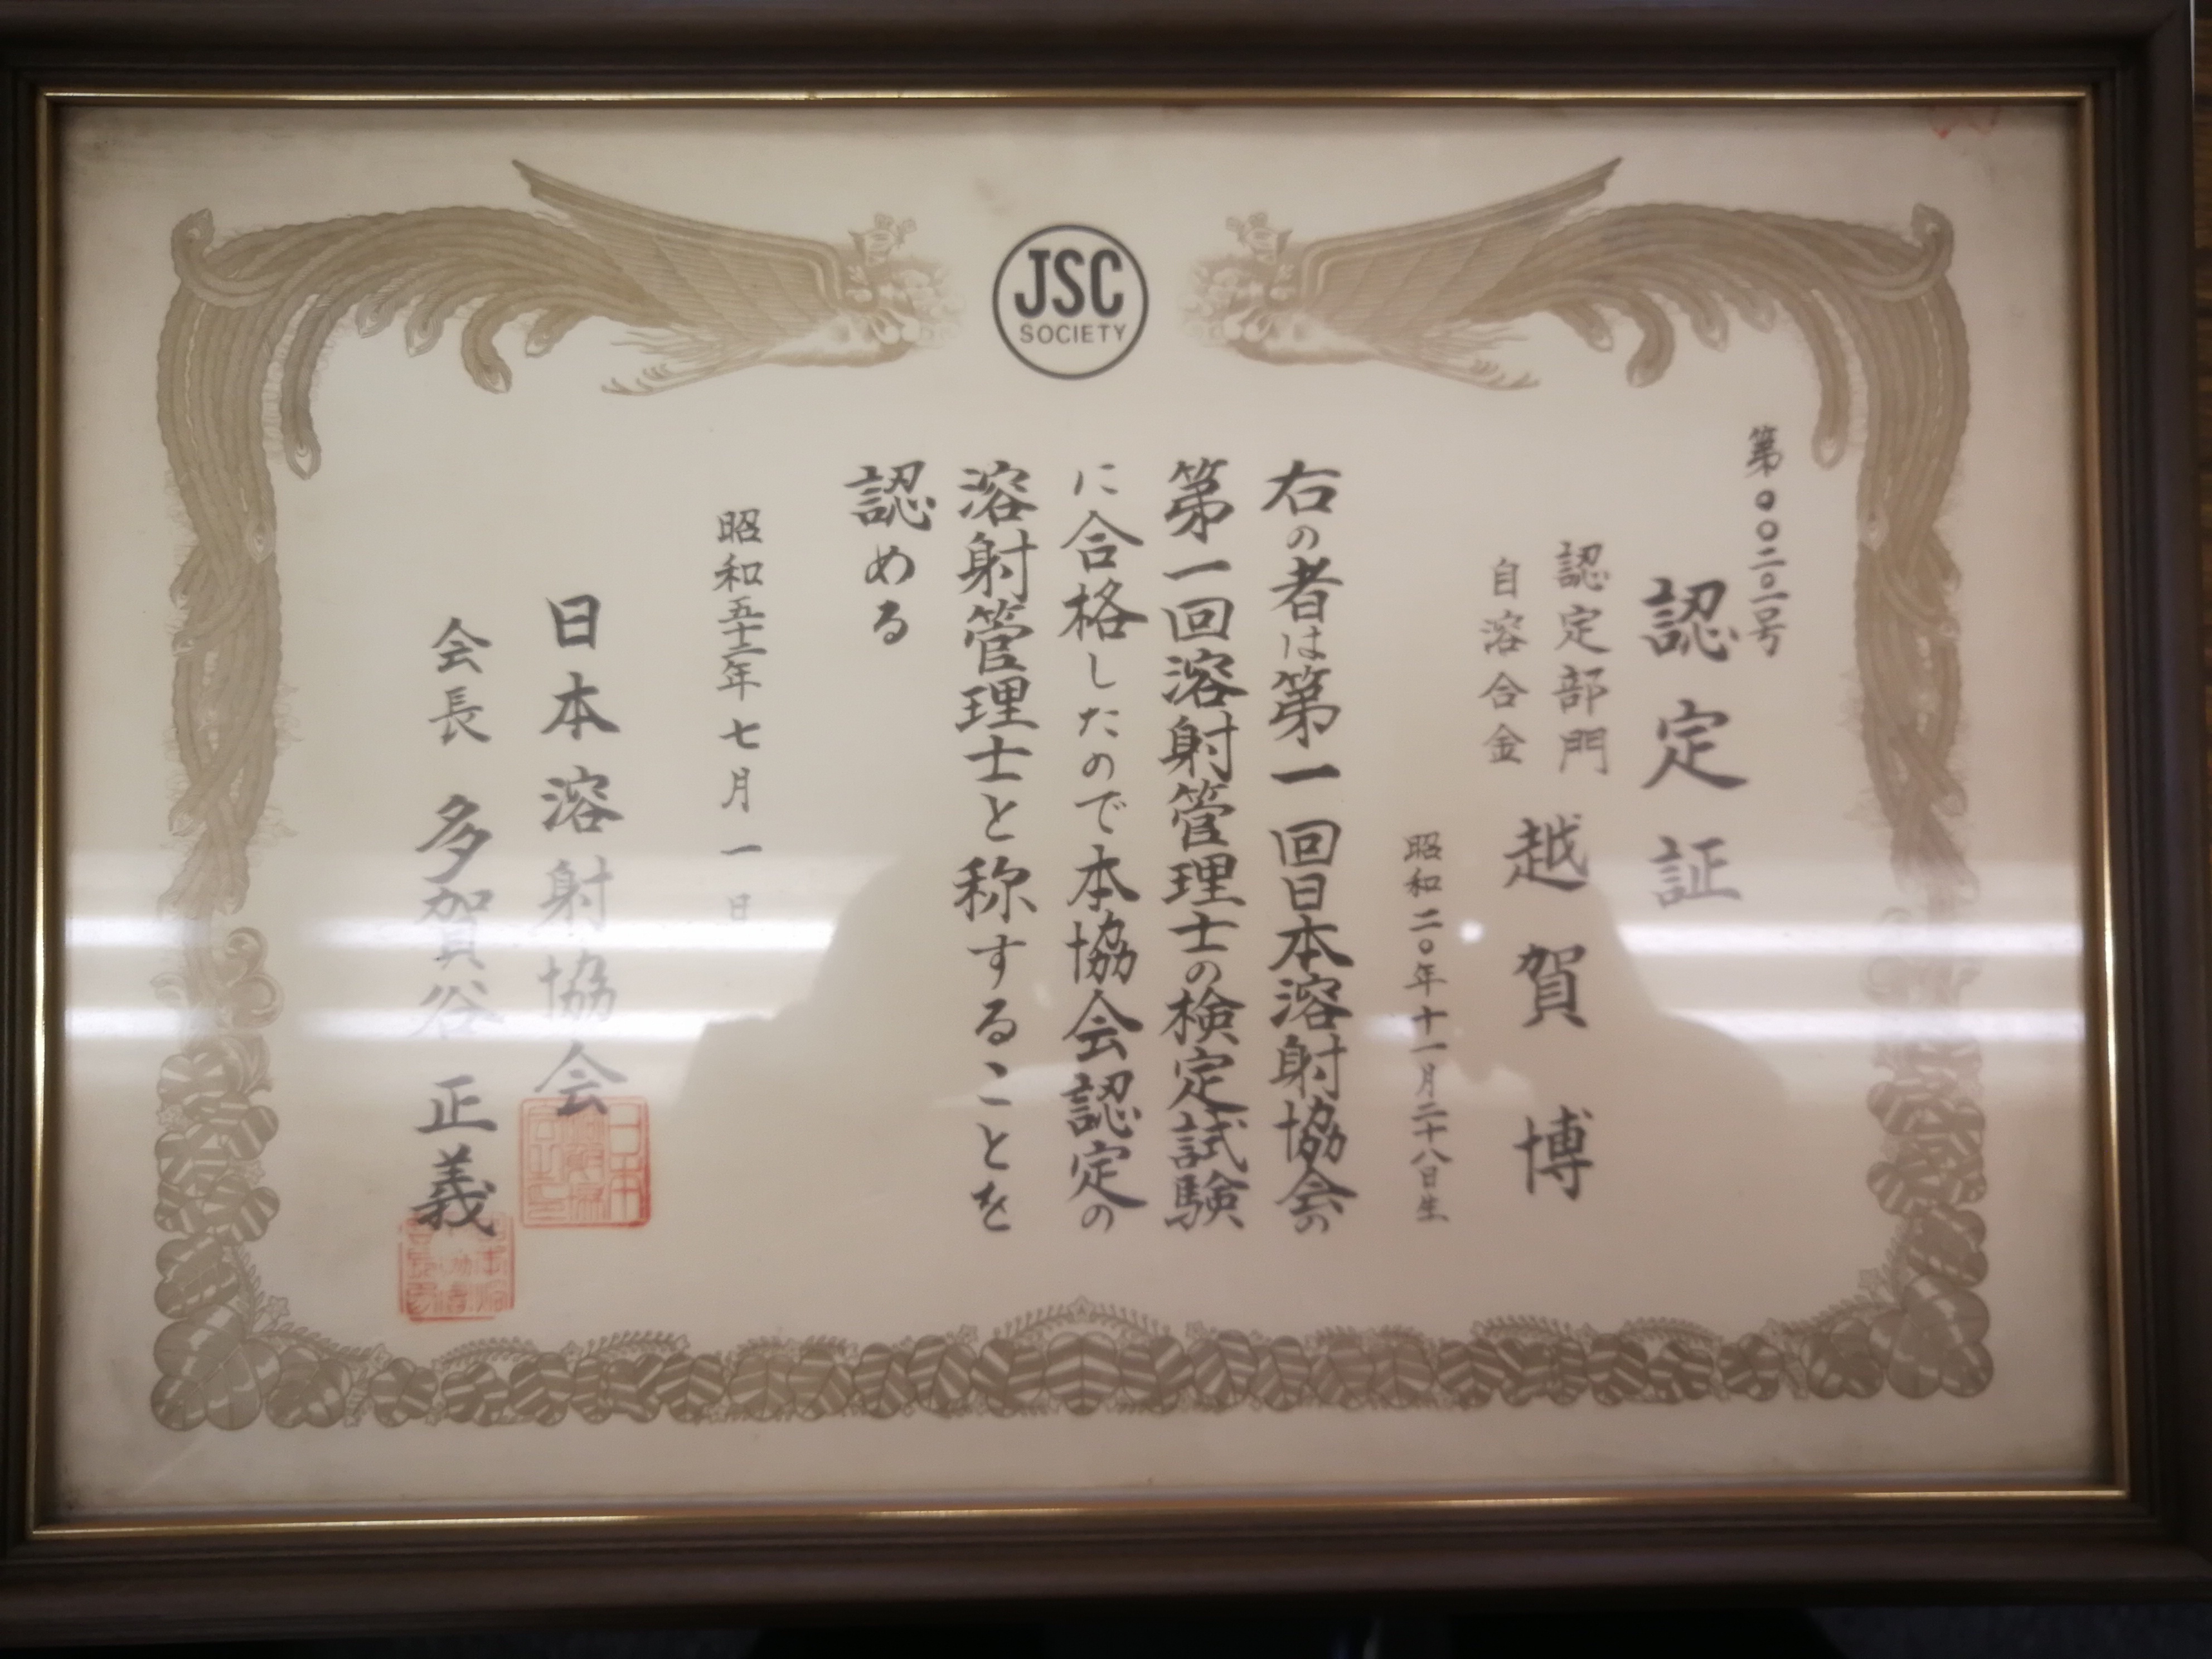 JSC
SOCIETY
第〇〇二〇二号
認定証
認定部門
自溶合金
越賀博
昭和二〇年十一月二十八日生
右の者は第一回日本溶射協会の
第一回溶射管理士の検定試験
に合格したので本協会認定の
溶射管理士と称することを
認める
昭和五十二年七月一日
日本溶射協会
会長 多賀谷正義